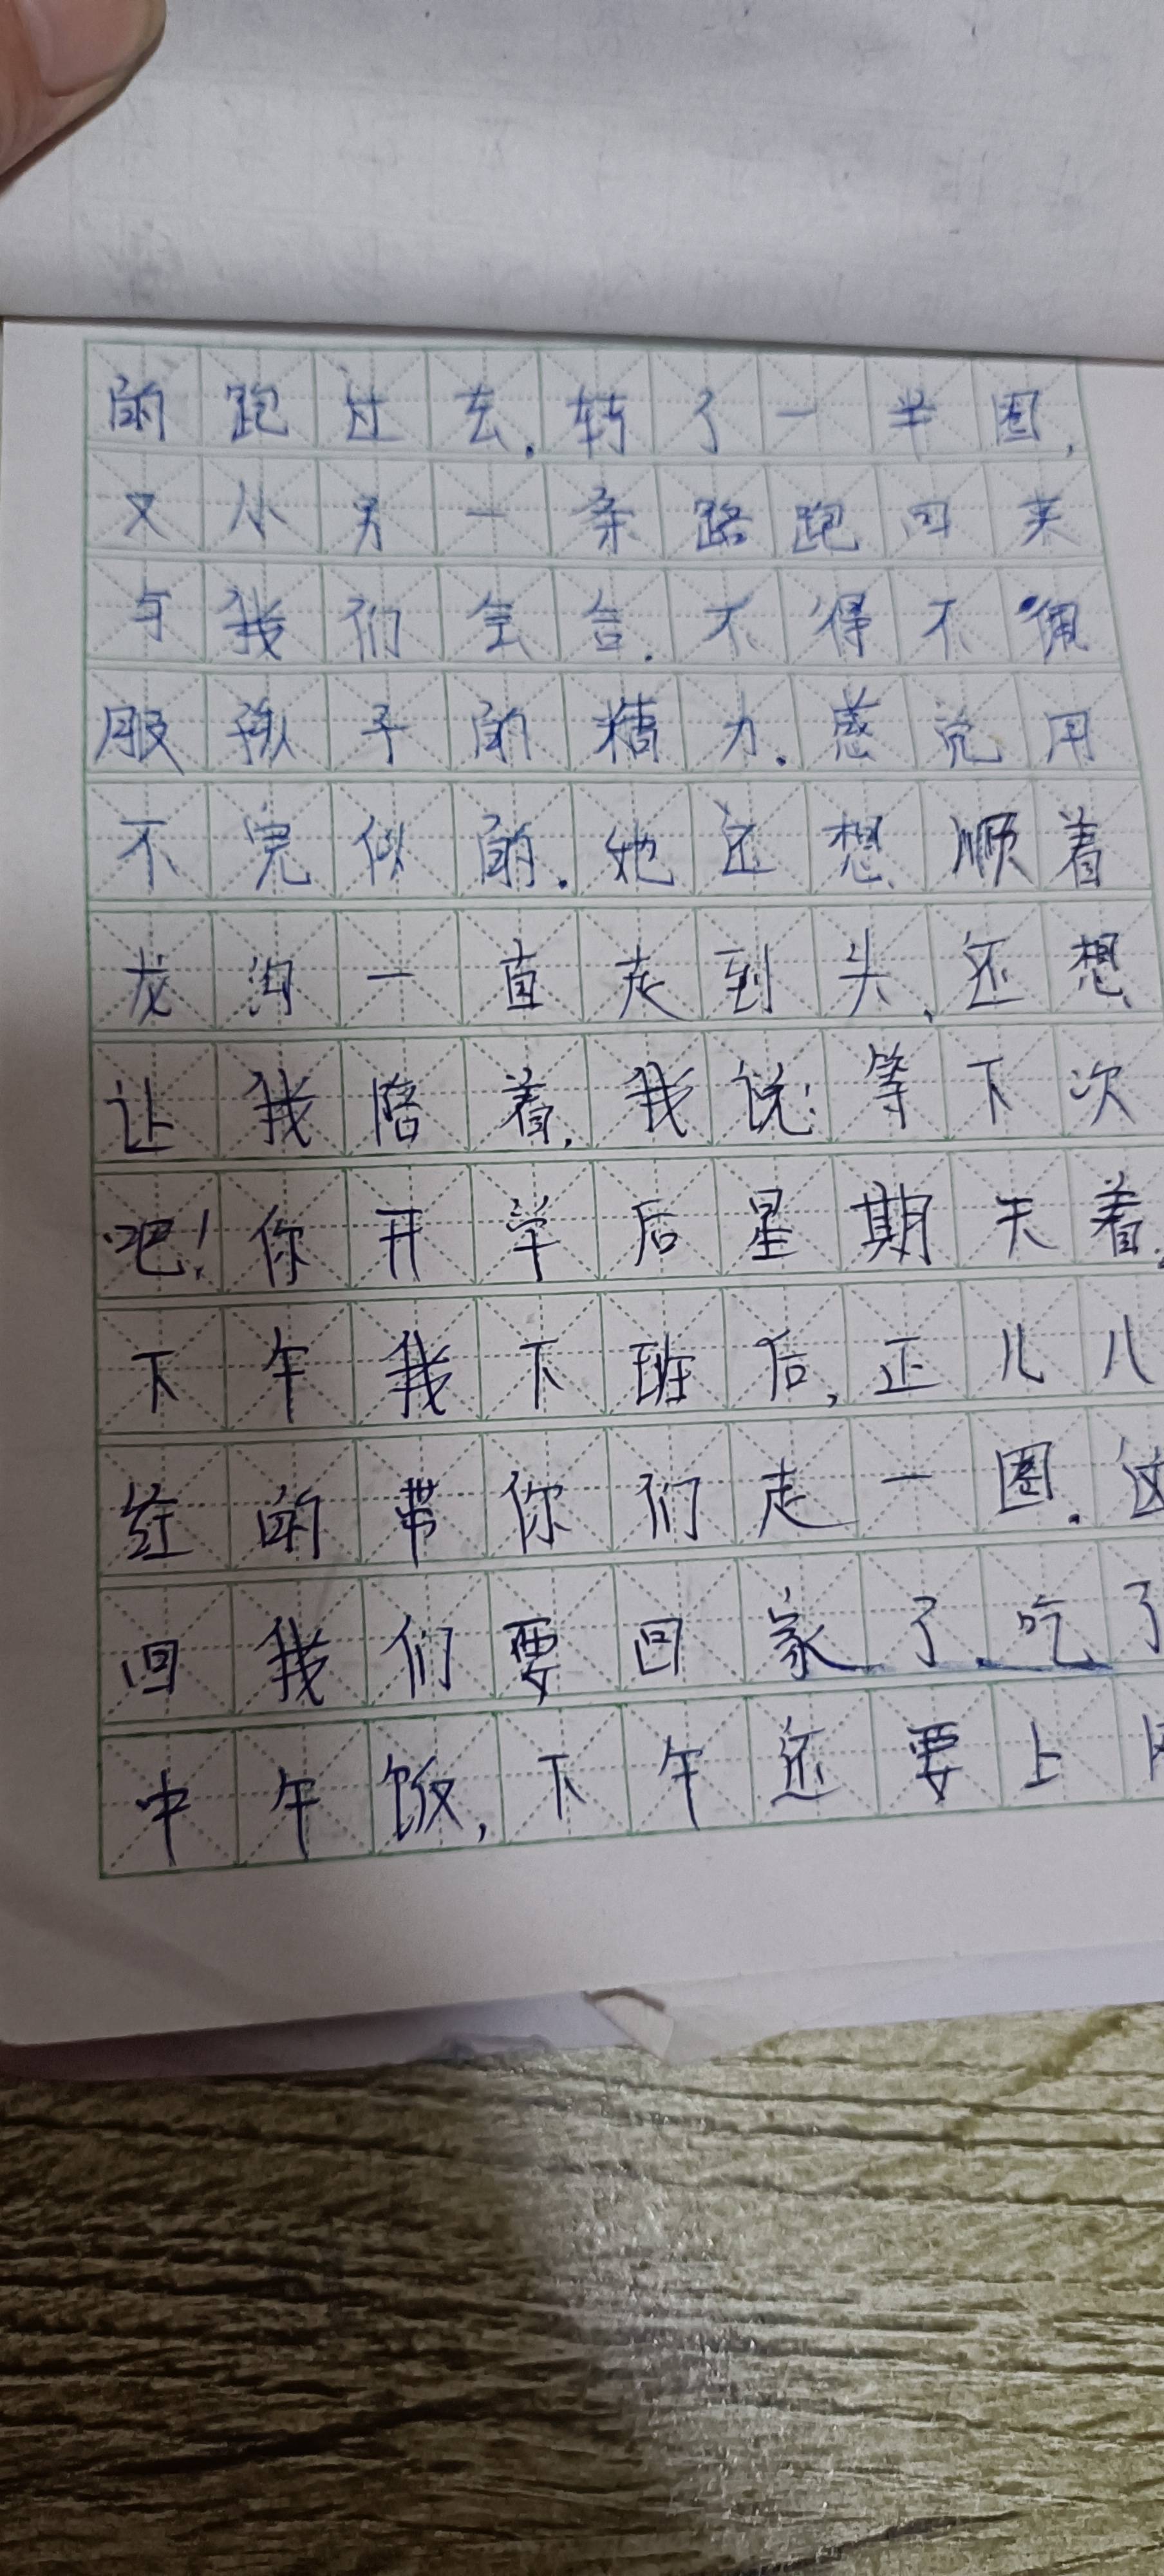 的跑过去.转了一半圈,
又从另一条路跑回来
与我们会合.不得不佩
服孩子的精力.感觉用
不完似的.她还想顺着
龙沟一直走到头,还想
让我陪着,我说:等下次
吧!你开学后星期天着.
下午我下班后,正儿八
经的带你们走一圈.这
回我们要回家了.吃了
中午饭,下午还要上